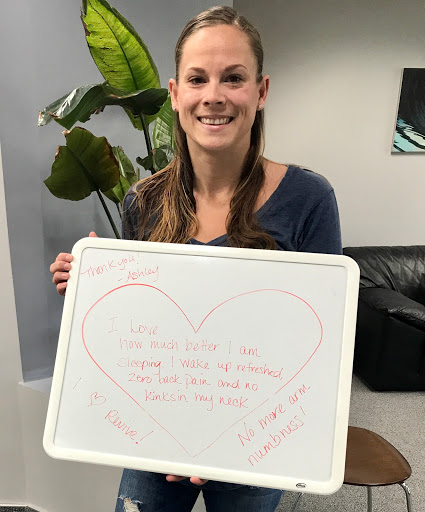 Thank you!
- Ashley
I Love
how much better I am
sleeping. I wake up refreshed,
Zero back pain and no
kinks in my neck
! ♡
Revive!
No more arm
numbness!